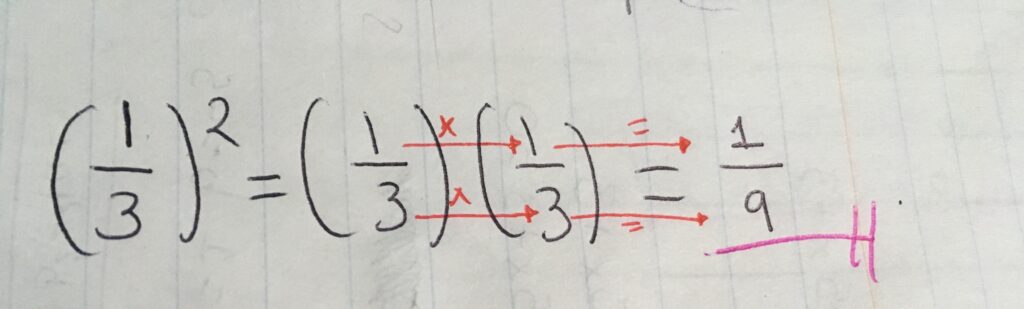 (1/3)² = (1/3) × (1/3) = 1/9